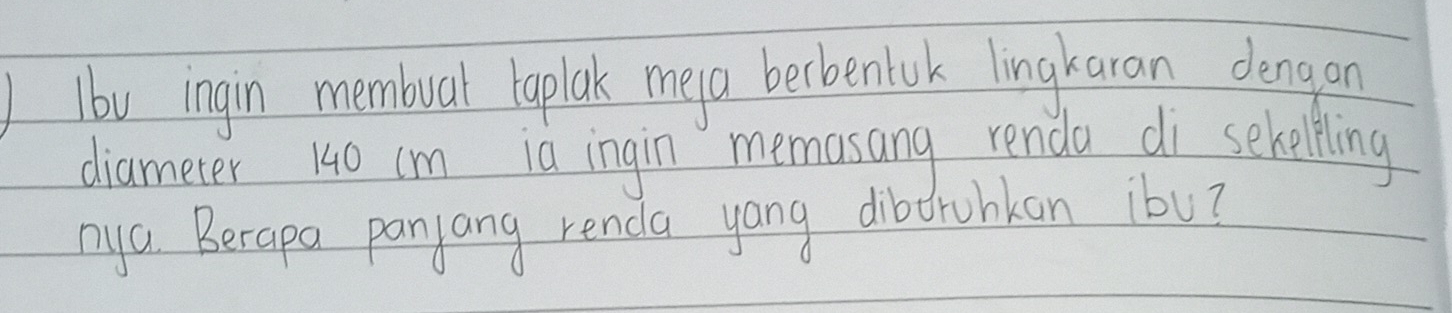 ) Ibu ingin membuat taplak meja berbentuk lingkaran dengan
diameter 140 cm ia ingin memasang renda di sekeliling
nya. Berapa panjang renda yang dibutuhkan ibu?